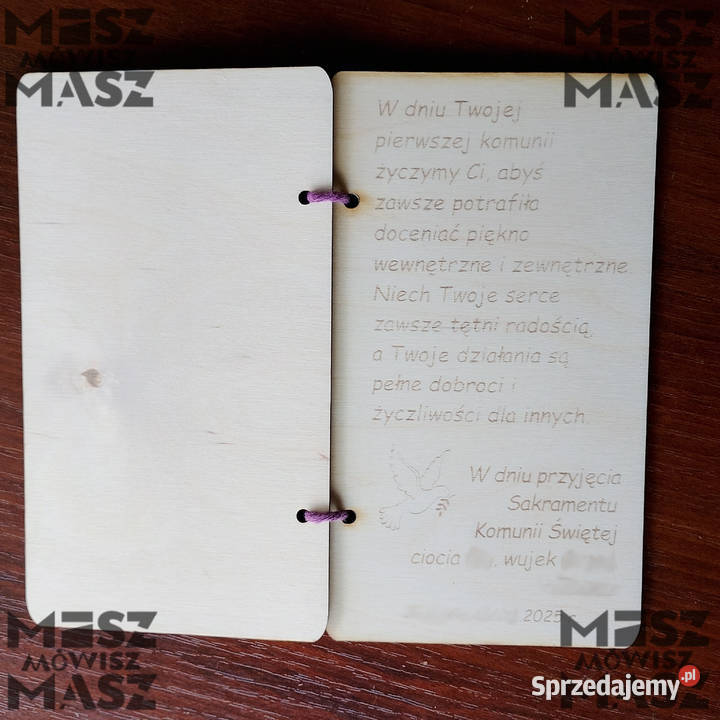 MÓWISZ
MASZ
MÓWISZ
MASZ
W dniu Twojej
pierwszej komunii
życzymy Ci, abyś
zawsze potrafiła
doceniać piękno
wewnętrzne i zewnętrzne.
Niech Twoje serce
zawsze tętni radością,
a Twoje działania są
pełne dobroci i
życzliwości dla innych.
W dniu przyjęcia
Sakramentu
Komunii Świętej
ciocia , wujek
2025 r.
MÓWISZ
MASZ
MÓWISZ
MASZ
Sprzedajemy.pl